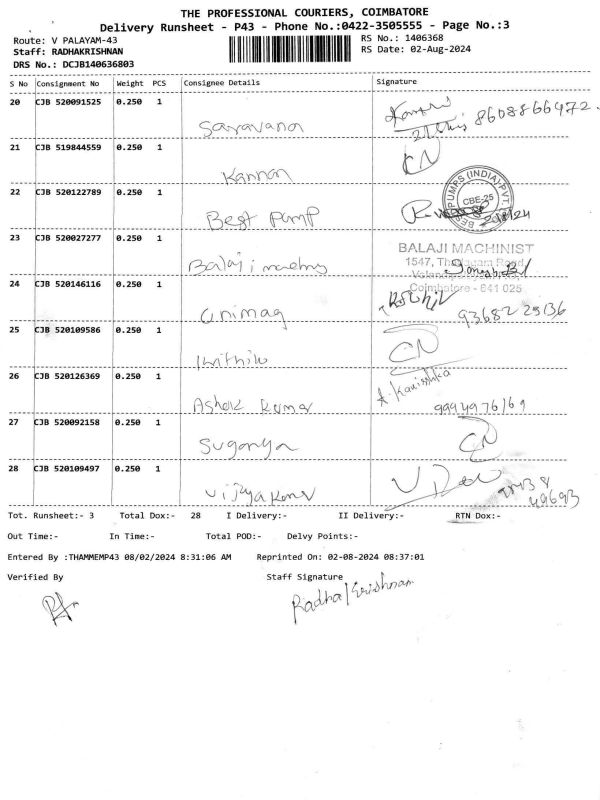 THE PROFESSIONAL COURIERS, COIMBATORE
Delivery Runsheet - P43 - Phone No.:0422-3505555 - Page No.:3
Route: V PALAYAM-43 RS No.: 1406368
Staff: RADHAKRISHNAN RS Date: 02-Aug-2024
DRS No.: DCJB140636803
S No Consignment No Weight PCS Consignee Details Signature
20 CJB 520091525 0.250 1 Saravana 8608866472
21 CJB 519844559 0.250 1 Kannan CN
22 CJB 520122789 0.250 1 Best Pump
BEST PUMPS (INDIA) PVT. LTD CBE-25
23 CJB 520027277 0.250 1 Balaji
BALAJI MACHINIST
1547,
Coimbatore - 641 025
24 CJB 520146116 0.250 1 Unimag
25 CJB 520109586 0.250 1 CN
26 CJB 520126369 0.250 1 Ashok Kumar A. Kanishka 9994976169
27 CJB 520092158 0.250 1 Suganya CN
28 CJB 520109497 0.250 1
Tot. Runsheet:- 3 Total Dox:- 28 I Delivery:- II Delivery:- RTN Dox:-
Out Time:- In Time:- Total POD:- Delvy Points:-
Entered By :THAMMEMP43 08/02/2024 8:31:06 AM Reprinted On: 02-08-2024 08:37:01
Verified By Staff Signature
Radhakrishnan